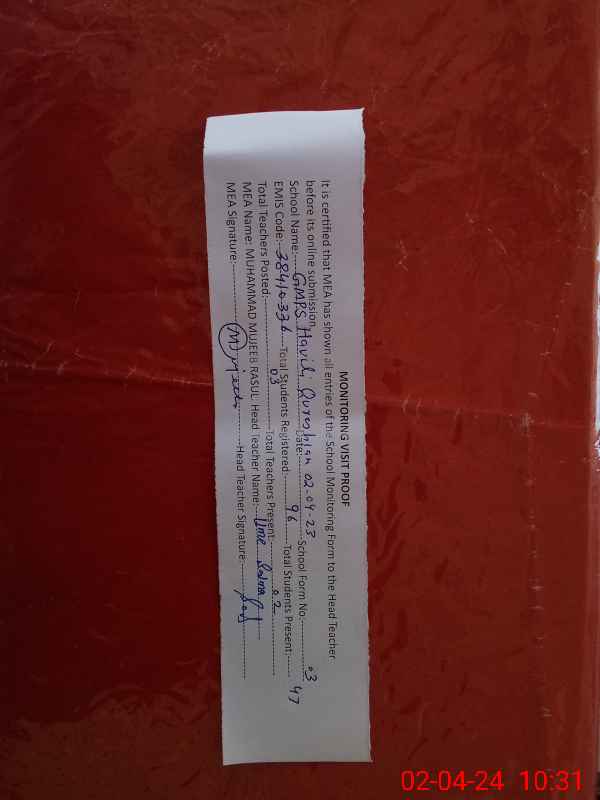 MONITORING VISIT PROOF
It is certified that MEA has shown all entries of the School Monitoring Form to the Head Teacher
before its online submission.
School Name:....GMPS Havili Qureshian....Date:..02-04-23....School Form No:........03
EMIS Code:...38410336....Total Students Registered:........96......Total Students Present:......47
Total Teachers Posted:........03........Total Teachers Present:........02
MEA Name: MUHAMMAD MUJEEB RASUL Head Teacher Name:....Ume Salma
MEA Signature:................Mujeeb........Head Teacher Signature:........
02-04-24 10:31